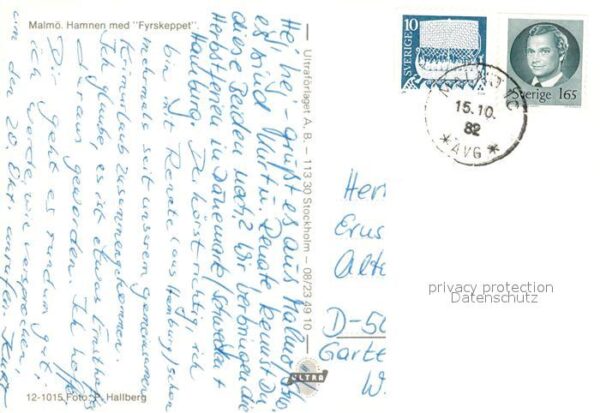 Malmö. Hamnen med "Fyrskeppet".
Hej, hej - grüßt es aus Malmö! So,
es sind Kurt u. Renate, kennst Du
diese beiden noch? Wir verbringen die
Herbstferien in Dänemark/Schweden +
Hamburg. Du hörst richtig, ich
bin mit Renate (aus Hamburg) schon
mehrmals seit unserem gemeinsamen
Kururlaub zusammengekommen.
Ich glaube, es ist etwas Ernsthaftes
daraus geworden. Ich hoffe,
Dir geht es rundum gut.
Ich werde, wie versprochen,
um den 20. Okt. anrufen. Kurt
12-1015 Foto: P. Hallberg
Ultraförlaget A.B. - 113 30 Stockholm - 08/23 49 10
ULTRA
10
SVERIGE
Sverige 1.65
MALMÖ C
15.10.
82
* AVG *
Her
Erns
Alte
D-50
Garte
W.
privacy protection
Datenschutz